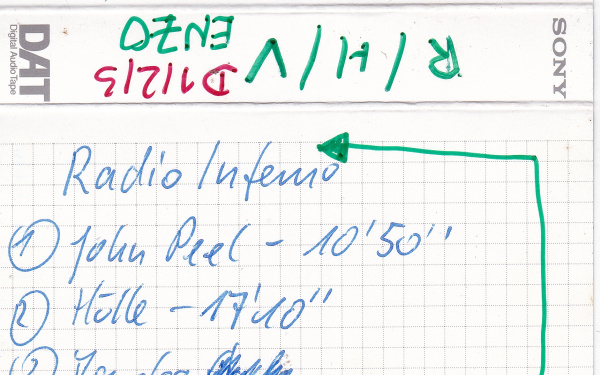 SONY
DAT
Digital Audio Tape
R / H / V
D1/2/3
ENZO
Radio Inferno
① John Peel – 10'50''
② Hölle – 17'10''
③